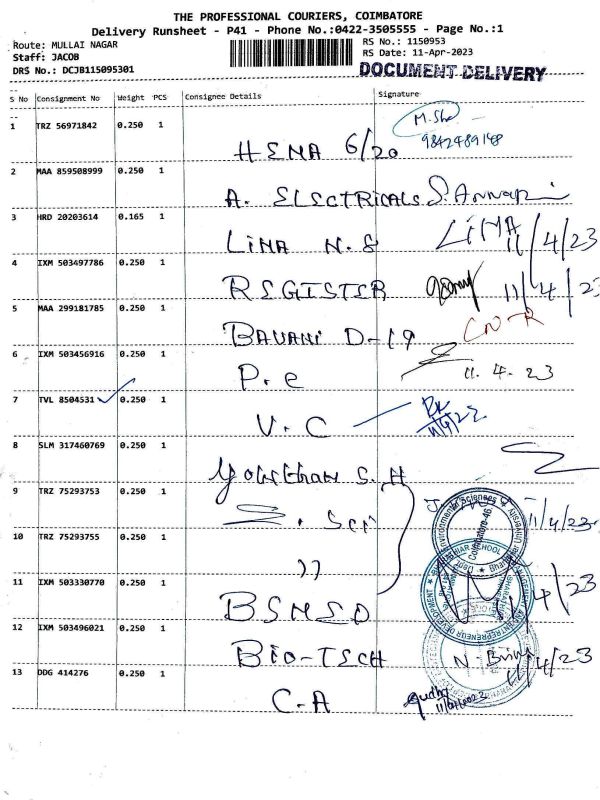 THE PROFESSIONAL COURIERS, COIMBATORE
Delivery Runsheet - P41 - Phone No.:0422-3505555 - Page No.:1
Route: MULLAI NAGAR
RS No.: 1150953
Staff: JACOB
RS Date: 11-Apr-2023
DRS No.: DCJB115095301
DOCUMENT DELIVERY
S No Consignment No Weight PCS Consignee Details Signature
1 TRZ 56971842 0.250 1 M. Sha
9842489148
HEMA 6/20
2 MAA 859508999 0.250 1
A. ELECTRICALS
3 HRD 20203614 0.165 1 LINA
LINA N.S 11/4/23
4 IXM 503497786 0.250 1
REGISTER 11/4/23
5 MAA 299181785 0.250 1 CN-R
BAVANI D-19
6 IXM 503456916 0.250 1
P.e 11.4.23
7 TVL 8504531 0.250 1
V.C
8 SLM 317460769 0.250 1
S.H
9 TRZ 75293753 0.250 1
Sci 11/4/23
10 TRZ 75293755 0.250 1
))
11 IXM 503330770 0.250 1 11/4/23
BSMED
12 IXM 503496021 0.250 1
BIO-TECH 11/4/23
13 DDG 414276 0.250 1
C-A
Environmental Sciences
Coimbatore-46